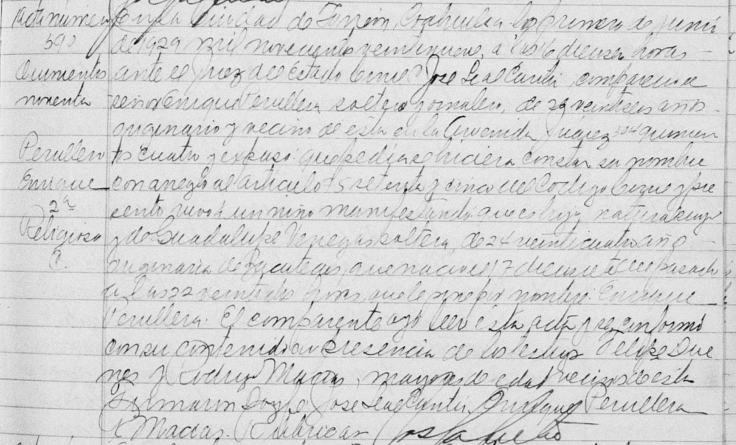 Acta número
590
quinientos
noventa
Perullero
Enrique
2a
Religioso
C.
En la Ciudad de Torreón, Coahuila a los primero de junio
de 1929 mil novecientos veintinueve, a las 16 dieciseis horas
ante el Juez del Estado Civil José Leal Cantú, comparece el
señor Enrique Perullera soltero jornalero, de 23 veintitres años
originario y vecino de esta en la Avenida Juárez quinien
tos cuatro y expuso: que pedía se hiciera constar su nombre
con arreglo al artículo 75 setenta y cinco del Código Civil y pre
sentó vivo a un niño manifestando que es hijo natural suyo
y de Guadalupe Venegas soltera, de 24 veinticuatro años
originaria de Zacatecas, que nació el 17 diecisiete pasado
a las 22 veintidos horas, que le pone por nombre: Enrique
Perullera. El compareciente oyó leer esta acta y se conformó
con su contenido en presencia de los testigos Felipe Due
nes y Rodrigo Macías, mayores de edad vecinos de esta
Firmaron Doy fe José Leal Cantú, Enrique Perullera
R Macías Rubricas